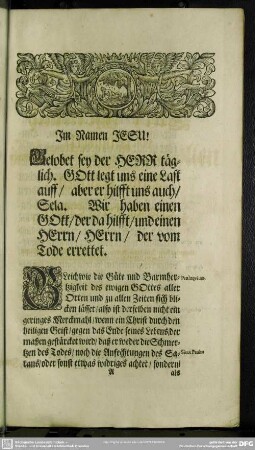 Im Namen JESU!
Gelobet sey der HERR täg-
lich. GOtt legt uns eine Last
auff/ aber er hilfft uns auch/
Sela. Wir haben einen
GOtt/ der da hilfft/ und einen
HErrn/ HErrn/ der vom
Tode errettet.
GLeichwie die Güte und Barmher-
tzigkeit des ewigen GOttes aller
Orten und zu allen Zeiten sich bli-
cken lässet/ also ist derselben nicht ein
geringes Merckmahl/ wenn ein Christ durch den
heiligen Geist/ gegen das Ende seines Lebens/ der
massen gestärcket wird/ daß er weder die Schmer-
tzen des Todes/ noch die Anfechtungen des Sa-
tans/ oder sonst etwas widriges achtet/ sondern
A als